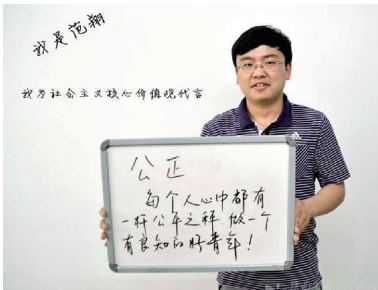 我是范翔
我为社会主义核心价值观代言
公正
每个人心中都有
一杆公平之秤,做一个
有良知的好青年!